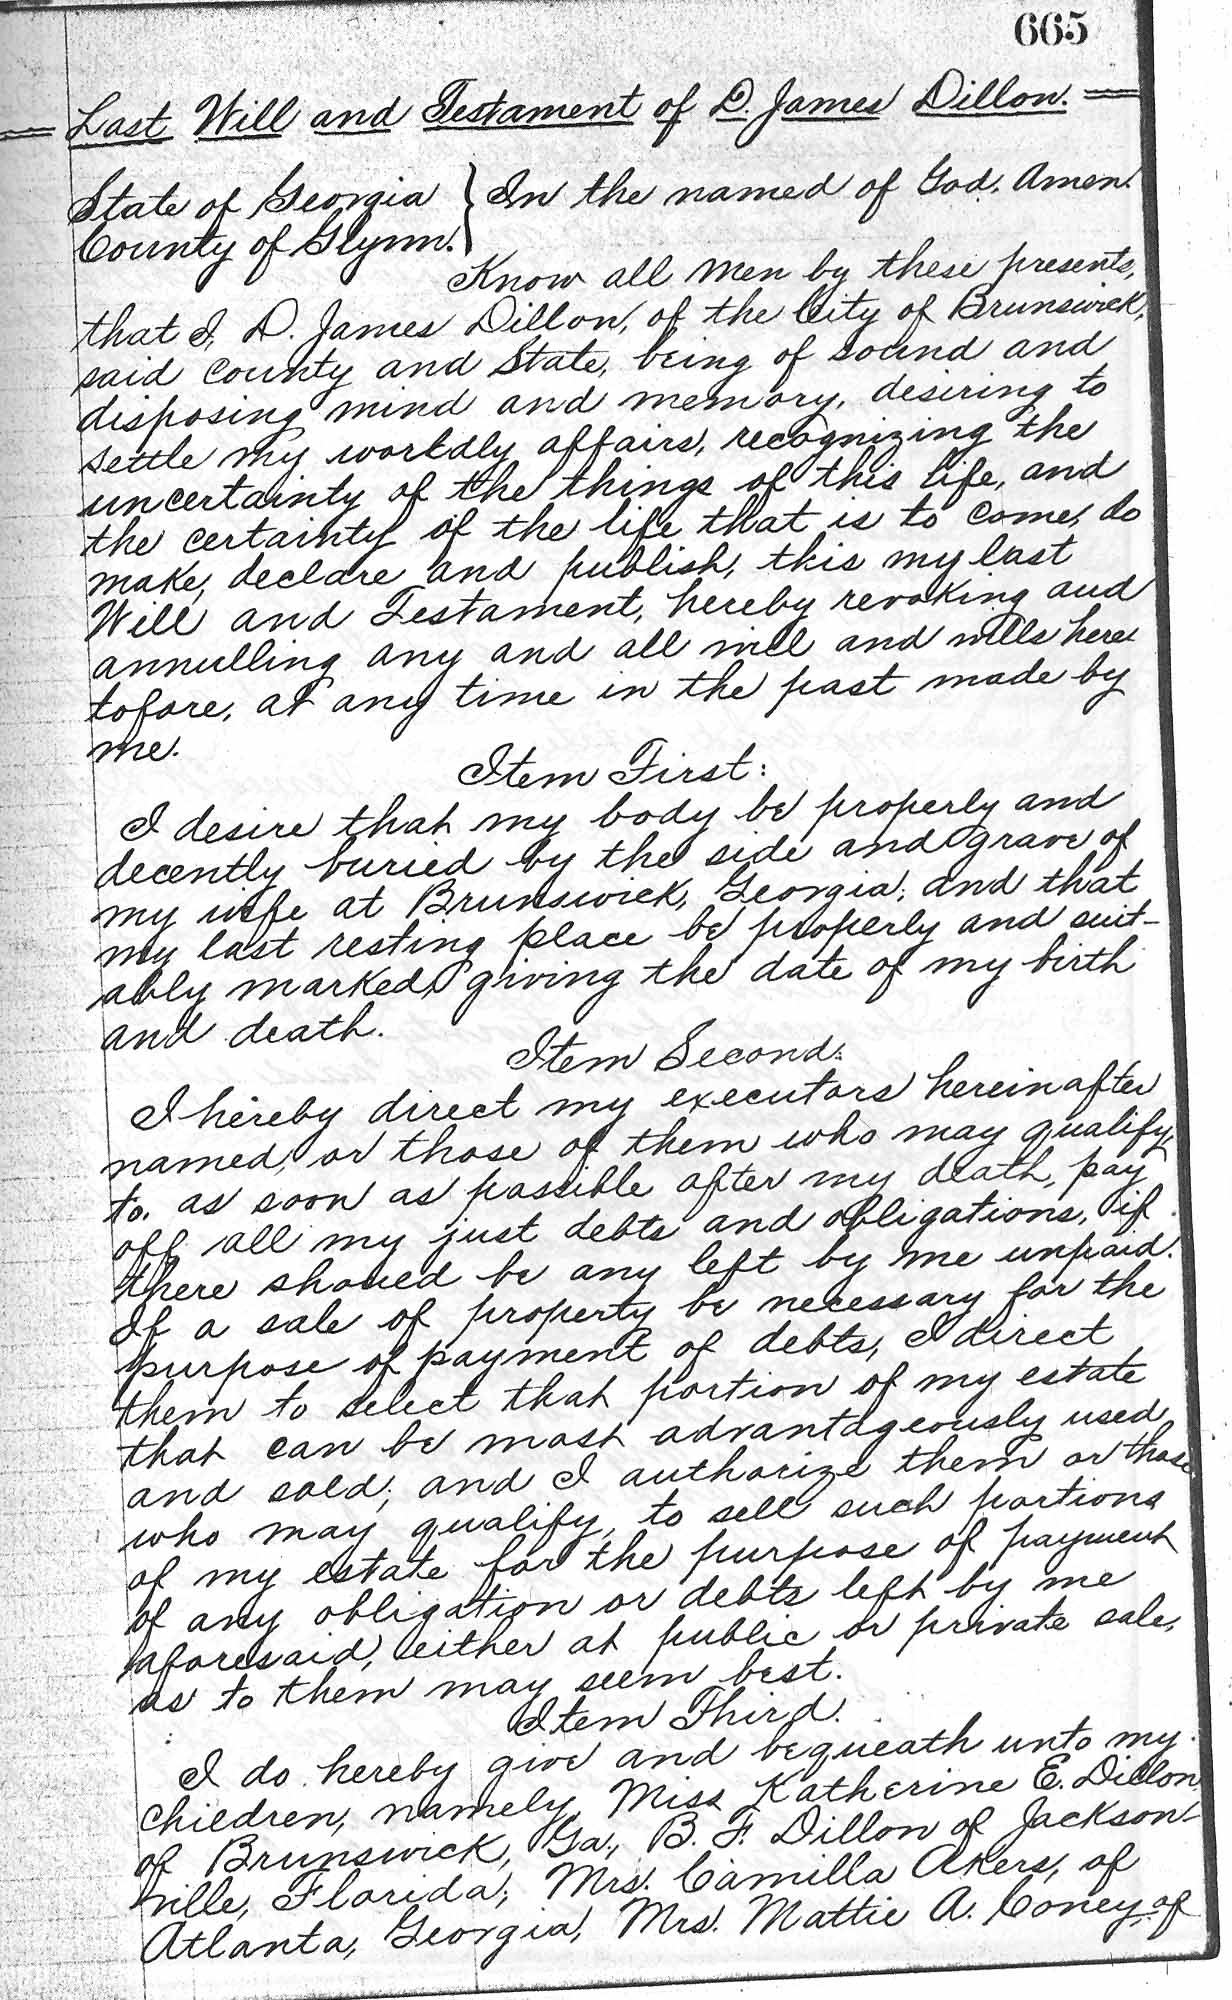 665
Last Will and Testament of D. James Dillon.
State of Georgia } In the named of God. Amen.
County of Glynn.
Know all men by these presents,
that I, D. James Dillon, of the City of Brunswick,
said county and State, being of sound and
disposing mind and memory, desiring to
settle my worldly affairs, recognizing the
uncertainty of the things of this life, and
the certainty of the life that is to come, do
make, declare and publish, this my last
Will and Testament, hereby revoking and
annulling any and all will and wills here
tofore, at any time in the past made by
me.
Item First:
I desire that my body be properly and
decently buried by the side and grave of
my wife at Brunswick, Georgia; and that
my last resting place be properly and suit-
ably marked, giving the date of my birth
and death.
Item Second:
I hereby direct my executors hereinafter
named, or those of them who may qualify,
to. as soon as possible after my death, pay
off all my just debts and obligations, if
there should be any left by me unpaid.
If a sale of property be necessary for the
purpose of payment of debts, I direct
them to select that portion of my estate
that can be most advantageously used
and sold; and I authorize them or those
who may qualify, to sell such portions
of my estate for the purpose of payment
of any obligation or debts left by me
aforesaid, either at public or private sale,
as to them may seem best.
Item Third.
I do hereby give and bequeath unto my
children, namely, Miss Katherine E. Dillon
of Brunswick, Ga., B. F. Dillon of Jackson-
ville, Florida; Mrs. Camilla Akers, of
Atlanta, Georgia, Mrs. Mattie A. Coney of